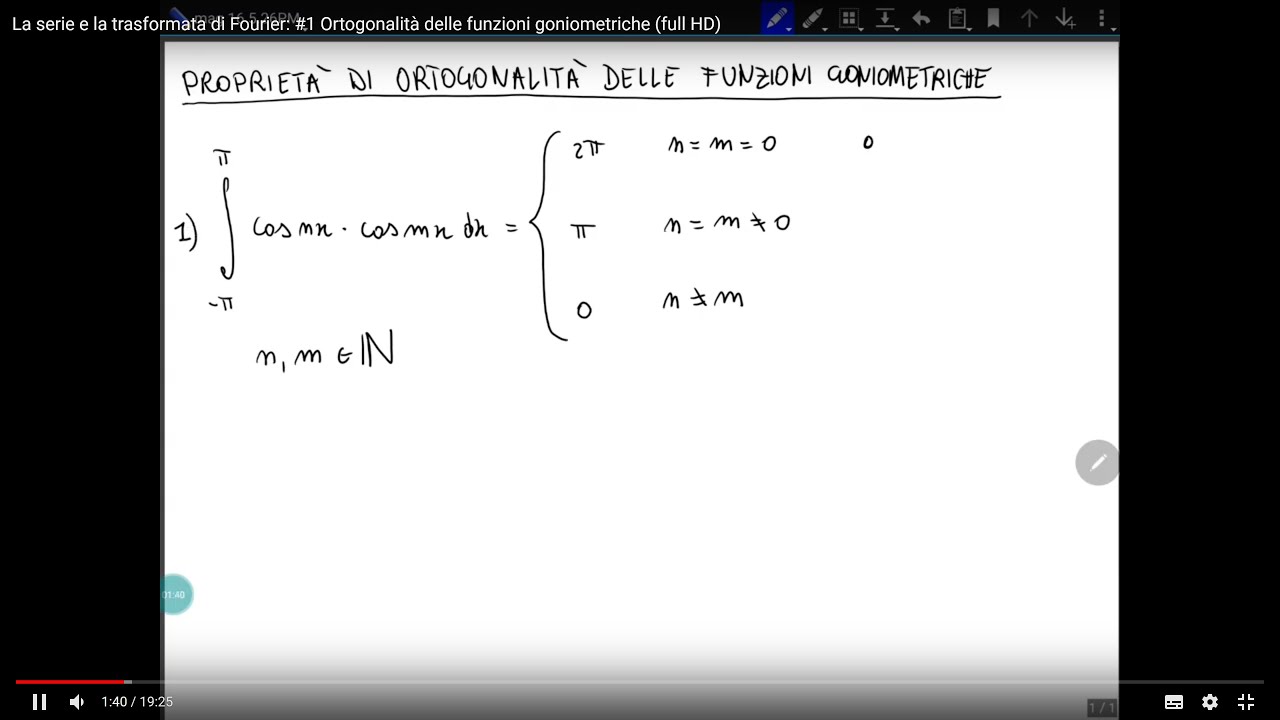 La serie e la trasformata di Fourier: #1 Ortogonalità delle funzioni goniometriche (full HD)
PROPRIETÀ DI ORTOGONALITÀ DELLE FUNZIONI GONIOMETRICHE
π
2π n = m = 0 0
1) ∫ cos nx · cos mx dx = { π n = m ≠ 0
-π
0 n ≠ m
n, m ∈ ℕ
01:40
1:40 / 19:25
1 / 1